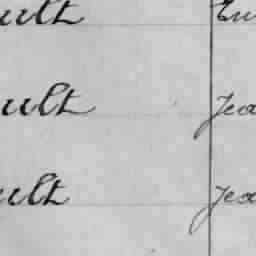 ult Em
ult Jea
ult Jea